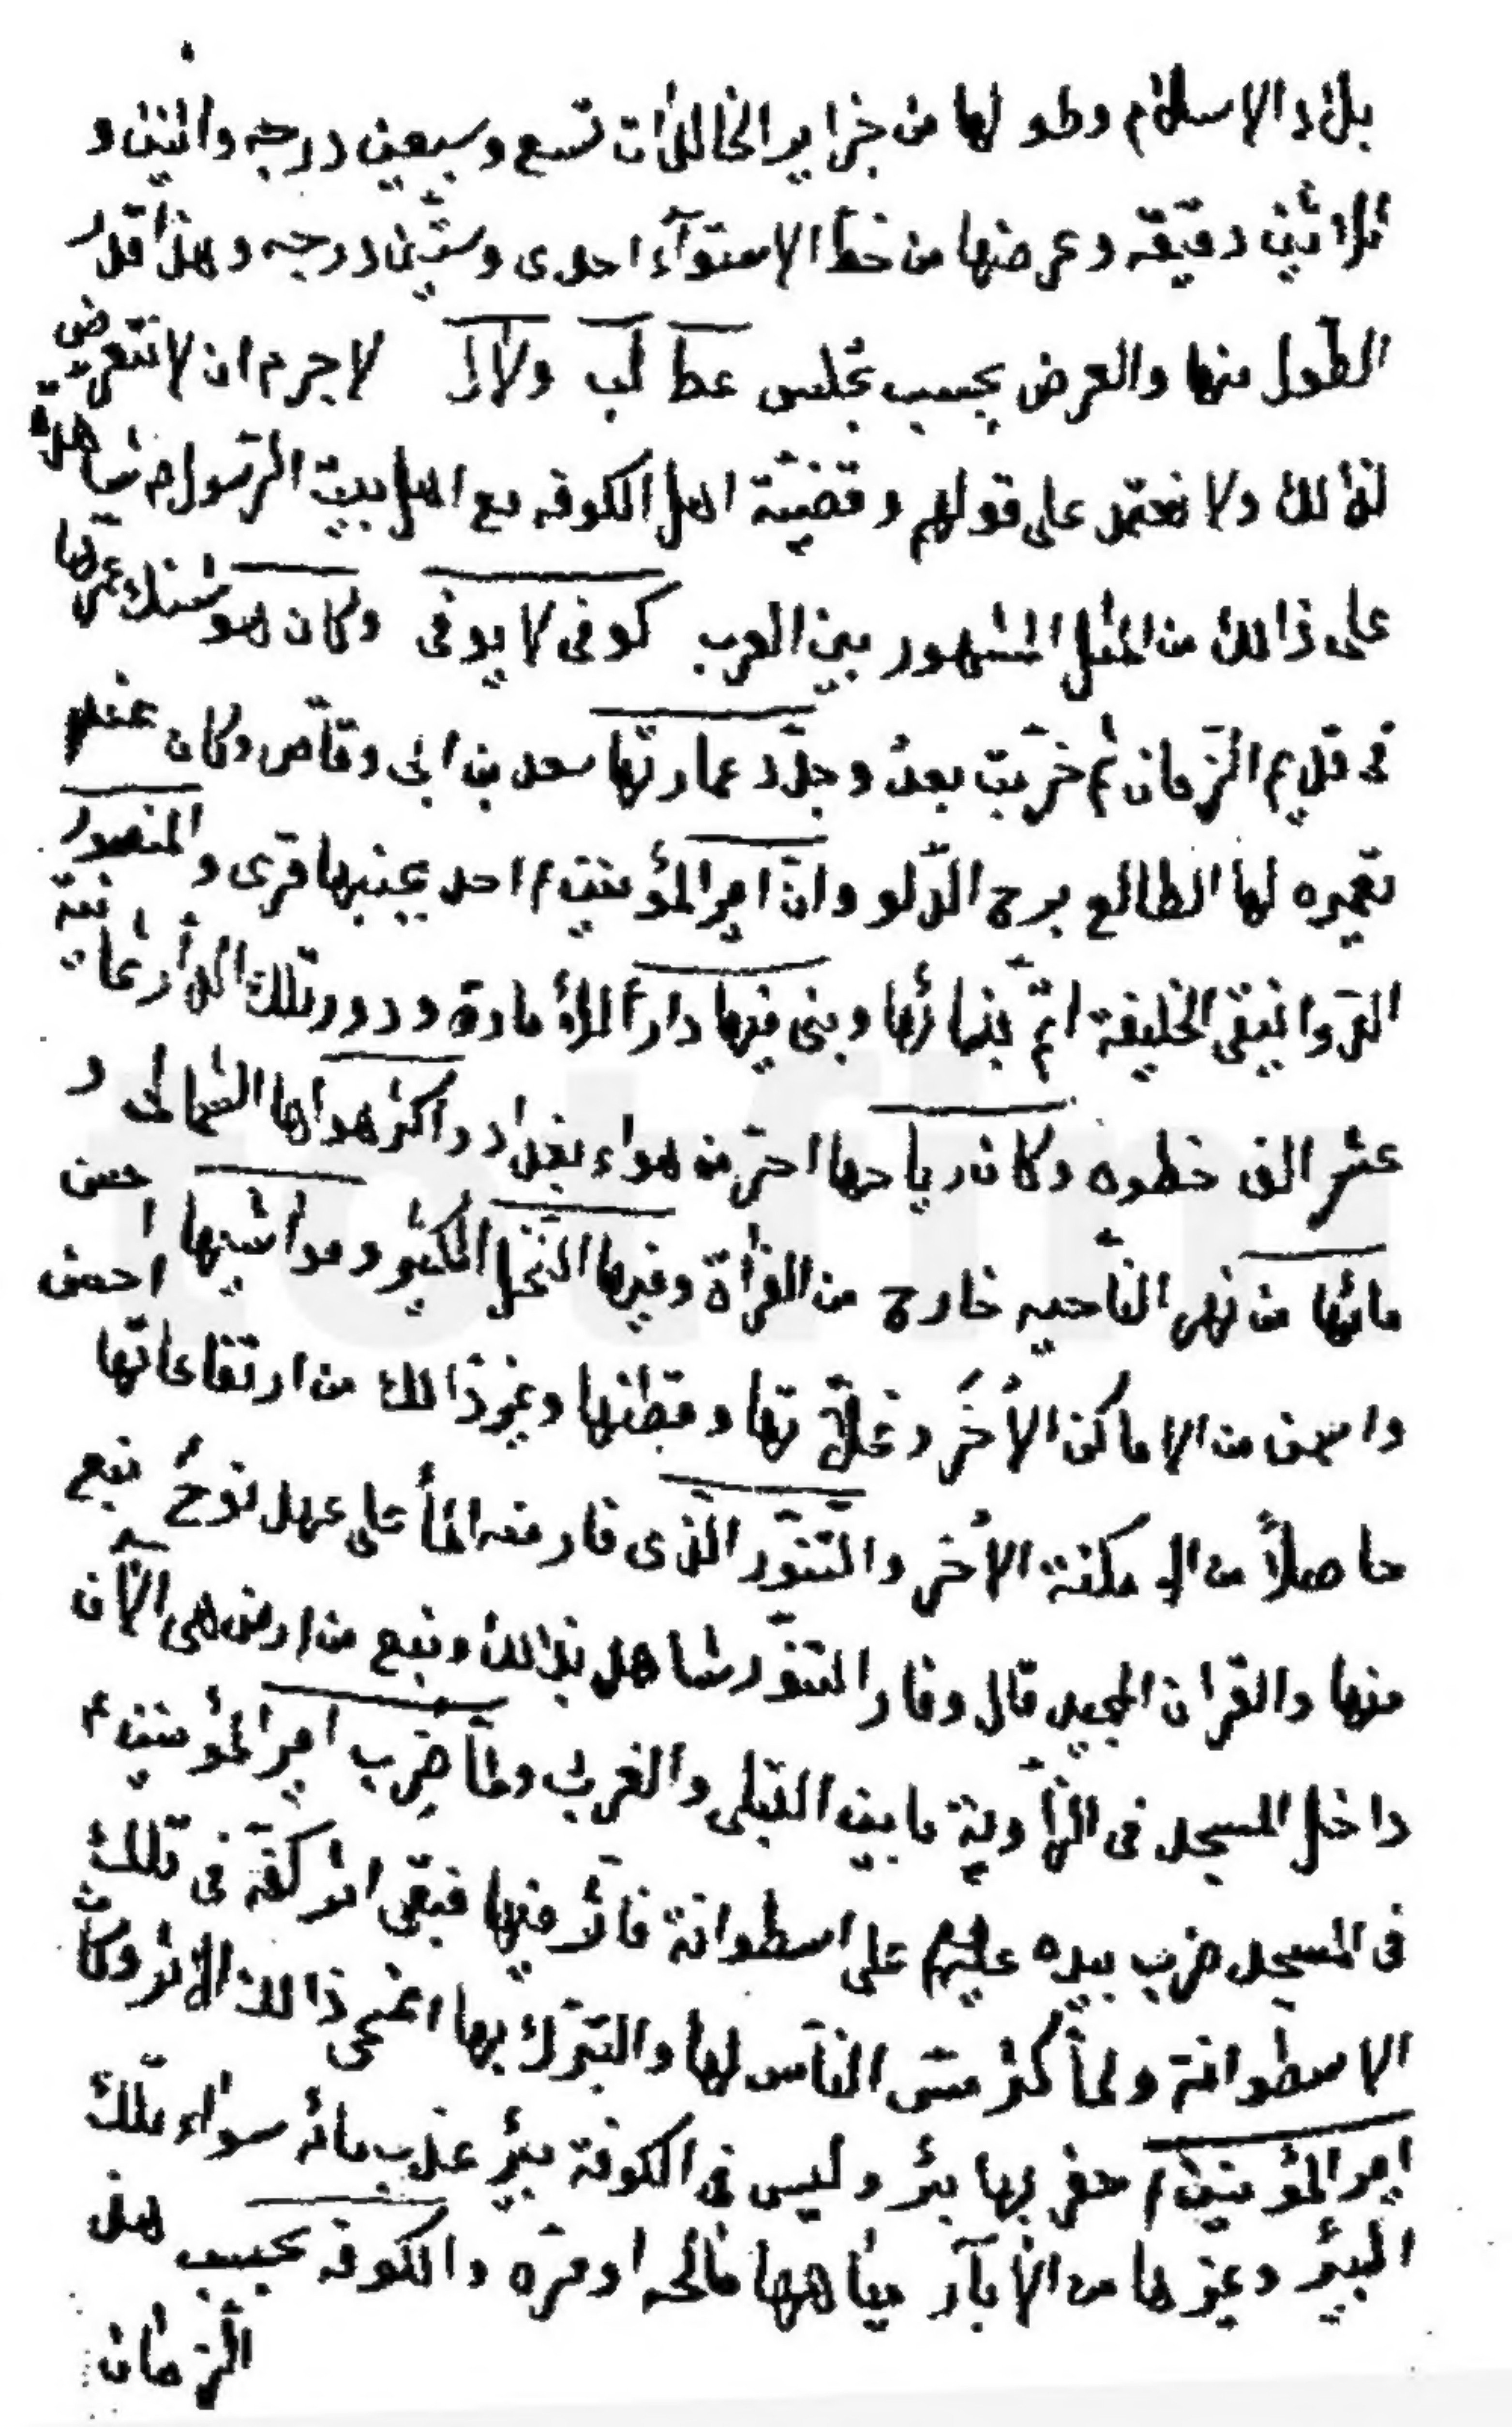 بلاد الاسلام وطو لها من جزاير الخالدات تسع وسبعين درجه واثنين و
ثلاثين دقيقه وعرضها من خط الاستوآء احدى وستين درجه وهذا قدر
الطول منها والعرض بحسب عطا لب ولالا لا جرم ان لا نتعرض
لذالك ولا نعتمد على قولهم وقضيّة اهل الكوفه مع اهل بيت الرّسول م شاهدة
على ذالك من المثل المشهور بين العرب كوفى لا يوفى وكان هوشنك عمرها
فى قديم الزّمان ثم خرّبت بعدُ وجدّد عمارتها سعد بن ابى وقاّص وكان عند
تعميره لها الطالع برج الدّلو وانّ امير المؤمنين ع احد بجنبها قرى والمنصور
الدّوانيقى الخليفة اتمّ بنائها وبنى فيها دار الأمارة ودور تلك الدار ثمانية
عشر الف خطوه وكان رياحها احرّ من هواء بغداد واكثر هواها الشمالى و
مائها من نهر النّاحيه خارج من الفرأة وفيها النّخل الكثير ومواشيها احسن
واسمن من الاماكن الأخَر وغلاّتها وقطنها وغير ذالك من ارتفاعاتها احسن
حاصلاً من الامكنة الأخر والتّنوّر الذى فار منه المأ على عهد نوحُ نبع
منها والقران المجيد قال وفار التنوّر شاهد بذالك ونبع من ارض هى الآن
داخل المسجد فى الزّأوية ما بين القبلى والغربى ولمّا ضرب امير المؤمنين ع
فى المسجد ضرب بيده عليهم على اسطوانة فأثر فيها فبقى اثر كفّه فى تلك
الاسطوانة ولمأ كثر مسّ النّاس لها والتبرّك بها امحى ذالك الاثر وكان
امير المؤمنين ع حفر بها بئر وليس فى الكوفة بئر عذب مائه سواء تلك
البئر وغيرها من الأبآر مياهها مالحه او مرّه والكوفه بحسب هذ
الزمان